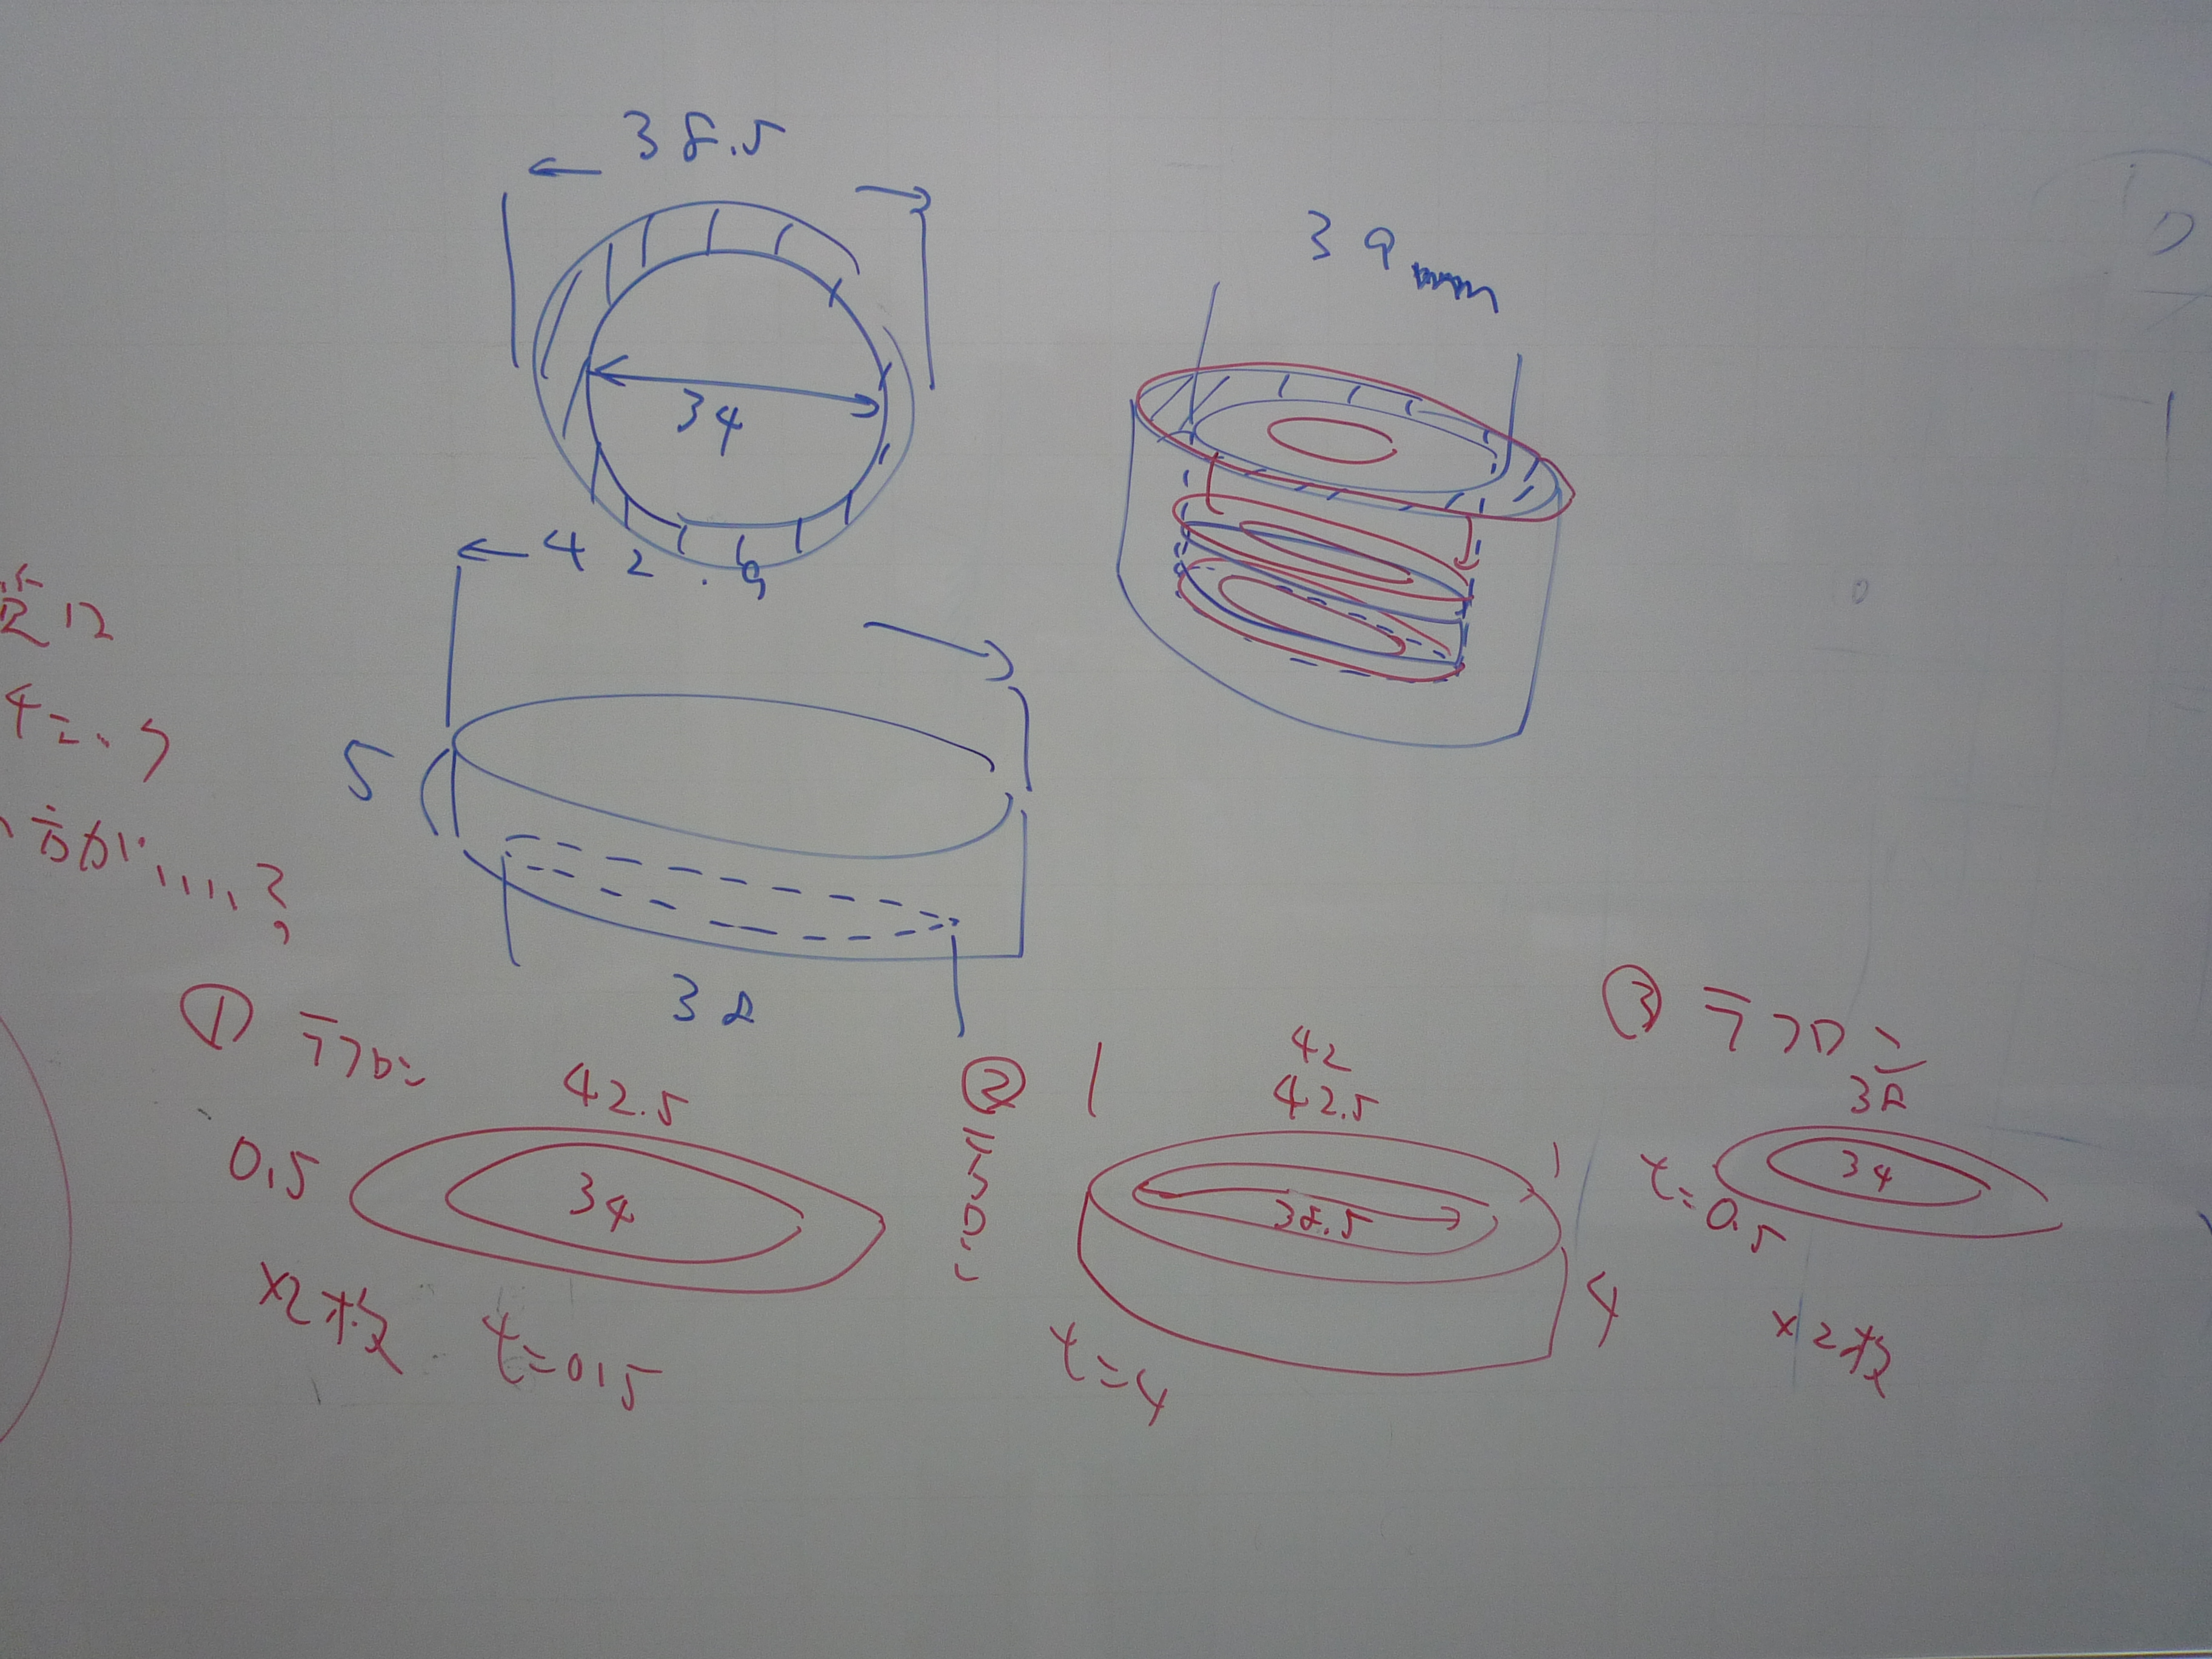 38.5
34
39mm
42.9
5
38
4=.
方が....?
① テフロン
42.5
0.5
34
×2枚
t=0.5
②
42
42.5
38.5
4
t=4
③ テフロン
38
34
t=0.5
×2枚